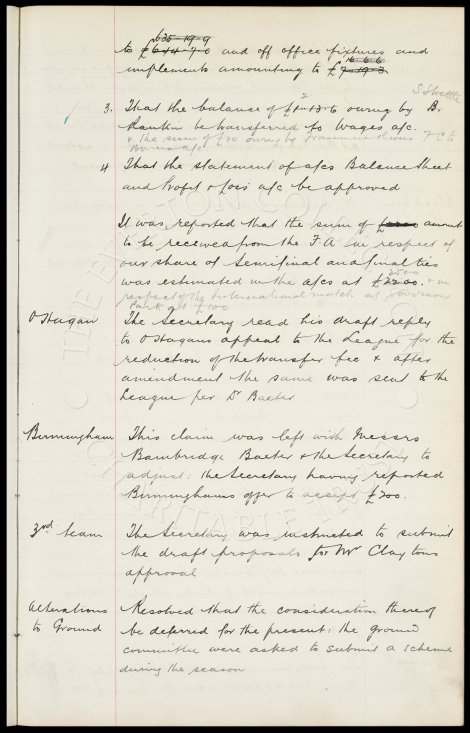 635-19-9
to £644-7-0 and off office fixtures and
16-6-6
implements amounting to £7-19-3
3. That the balance of £1-13-6 owing by B.
Rankin be transferred to Wages a/c.
& the sum of £20 owing by
Bonus a/c
4 That the statement of a/cs Balance Sheet
and Profit & loss a/c be approved
It was reported that the sum of amount
to be received from the F.A. in respect of
our share of Semifinal and final ties
2500
was estimated in the a/cs at £2200. & in
respect of the International match at Goodison
Park at £100
O'Hagan The Secretary read his draft reply
to O'Hagans appeal to the League for the
reduction of the transfer fee & after
amendment the same was sent to the
League per Dr Baxter
Birmingham This claim was left with Messrs
Bainbridge Baxter & the Secretary to
adjust: the Secretary having reported
Birminghams offer to accept £200.
3rd team The Secretary was instructed to submit
the draft proposals for Mr Claytons
approval
Alterations Resolved that the consideration thereof
to Ground be deferred for the present: the ground
committee were asked to submit a scheme
during the season
THE EVERTON CO
CHARITABLE TR